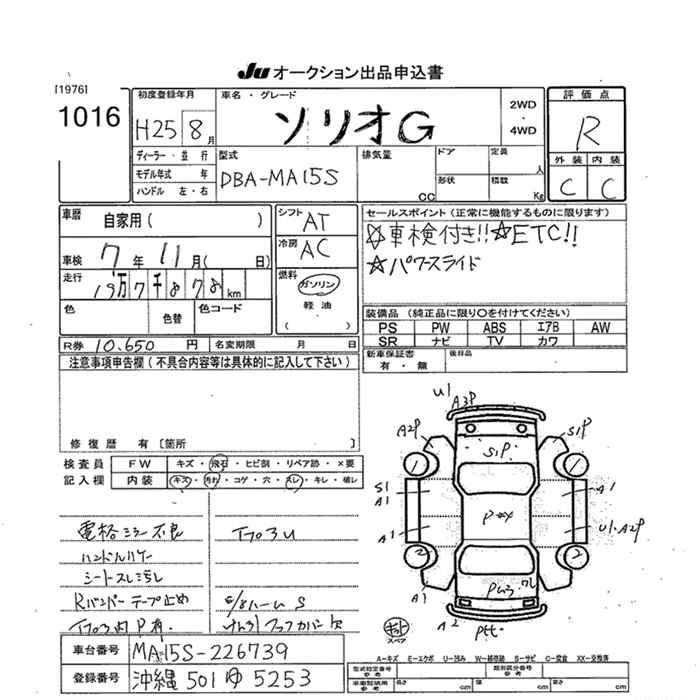 Ju オークション出品申込書
[1976]
1016
初度登録年月
H25 8月
車名・グレード
ソリオG
2WD
・
4WD
評価点
R
外装 内装
C C
ディーラー・並行
モデル年式 年
ハンドル 左・右
型式
DBA-MA15S
排気量
CC
ドア
形状
定員
人
積載
Kg
車歴
自家用( )
車検 7年11月( 日)
走行
19万7千878km
色
色替
色コード
シフト AT
冷房 AC
燃料
ガソリン
軽油
( )
セールスポイント(正常に機能するものに限ります)
☆車検付き!!☆ETC!!
★パワースライド
装備品(純正品に限り○を付けてください)
PS PW ABS エアB AW
SR ナビ TV カワ
R券 10,650円
名変期限 月 日
新車保証書
有・無
後日品
注意事項申告欄(不具合内容等は具体的に記入して下さい)
修復歴 有〔箇所 〕
検査員
記入欄
FW キズ・飛石・ヒビ割・リペア跡・×要
内装 キズ・汚れ・コゲ・穴・スレ・キレ・破レ
電格ミラー不良
ハンドルハゲ
シートスレ汚レ
Rバンパーテープ止め
U1
A3P
A2P
S1P
S1P
1
1
S1
A1
A1
A1
U1.A2P
2
2
A1
A1
A2
スペア
A-キズ E-エクボ U-凹み W-補修跡 S-サビ C-腐食 XX-交換済
車台番号 MA15S-226739
登録番号 沖縄 501 ゆ 5253
型式指定番号
参考
類別区分番号
参考
車輌証記載
参考
長さ cm 幅 cm 高さ cm